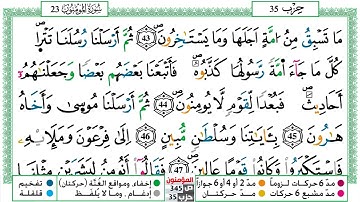 سُورَةُ المُومِنُونَ 23
حِزْب 35
مَا تَسْبِقُ مِنُ امَّةٍ اَجَلَهَا وَمَا يَسْتَخِرُونَ 43 ثُمَّ أَرْسَلْنَا رُسُلَنَا تَتْرَا
كُلَّ مَا جَآءَ امَّةً رَّسُولُهَا كَذَّبُوهُ فَأَتْبَعْنَا بَعْضَهُم بَعْضًا وَجَعَلْنَٰهُمُۥٓ
أَحَادِيثَ فَبُعْدًا لِّقَوْمٍ لَّا يُومِنُونَ 44 ثُمَّ أَرْسَلْنَا مُوسَىٰ وَأَخَاهُ
هَٰرُونَ 45 بِـَٔايَٰتِنَا وَسُلْطَٰنٍ مُّبِينٍ 46 إِلَىٰ فِرْعَوْنَ وَمَلَإِيْهِۦ
فَاسْتَكْبَرُواْ وَكَانُواْ قَوْمًا عَالِينَ 47 فَقَالُوٓاْ أَنُومِنُ لِبَشَرَيْنِ مِثْلِنَا
مدّ 6 حركات لزوماً مدّ 2 أو 4 أو 6 جوازاً إخفاء، ومواقع الغُنَّة (حركتان) تفخيم
مدّ مشبع 6 حركات مدّ حركتان إدغام، وما لا يُلفظ قلقلة
المؤمنون
ص 345
حزب 35